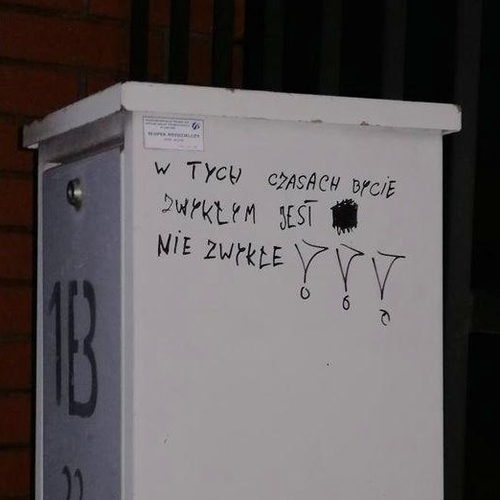 W TYCH CZASACH BYCIE
ZWYKŁYM JEST
NIE ZWYKŁE !!!
1B